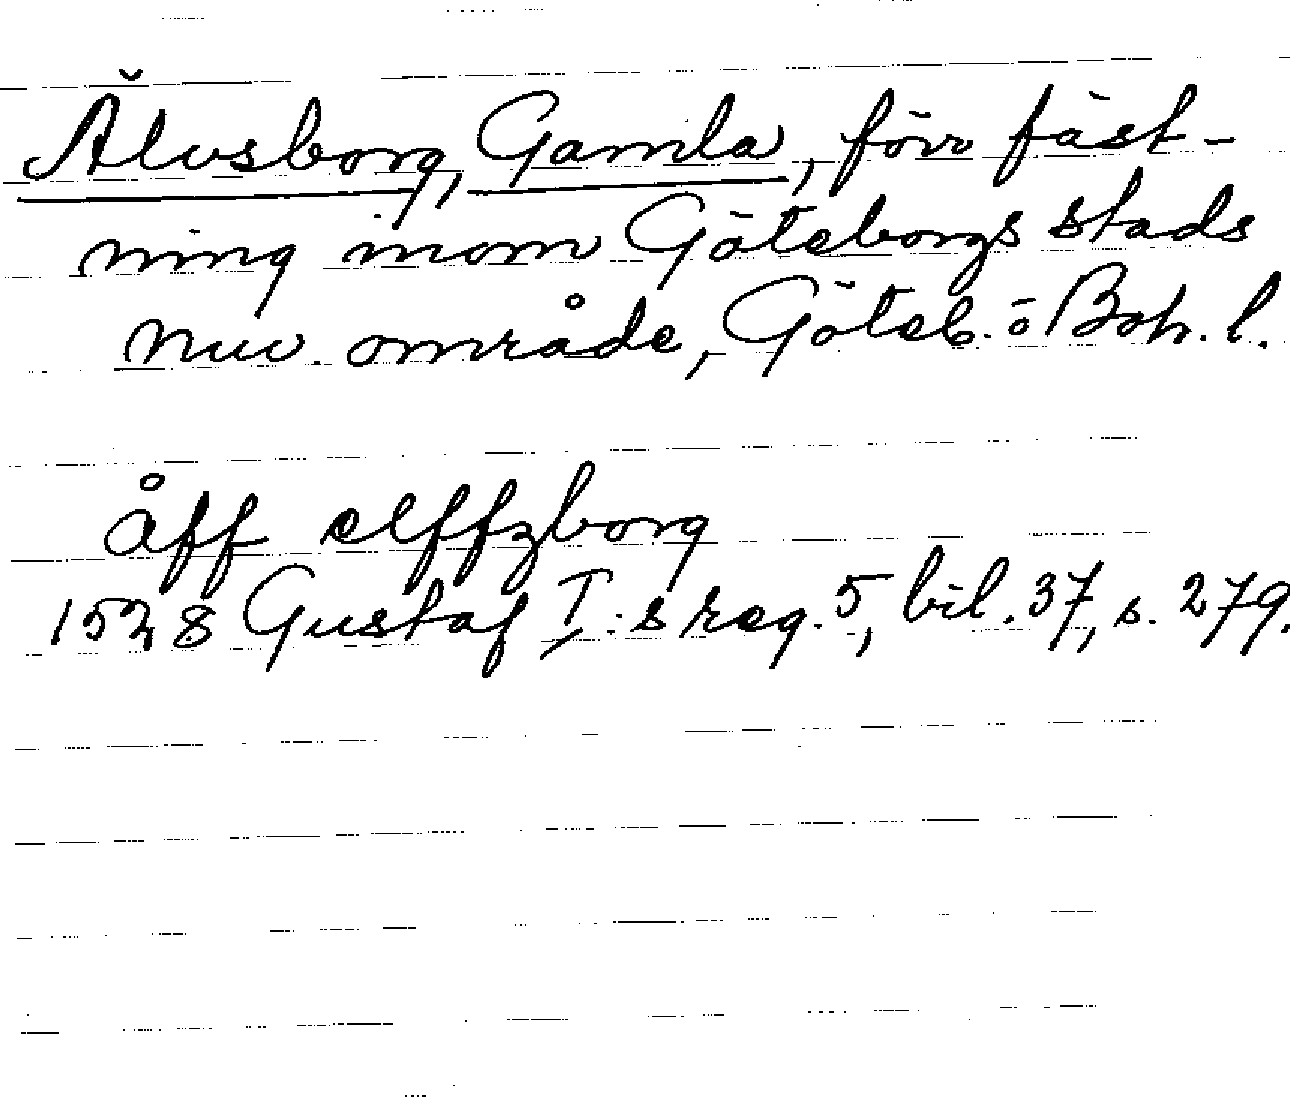 Älvsborg, Gamla, förr fäst-
ning inom Göteborgs stads
nuv. område, Göteb. o Boh. l.
åff elffzborg
1528 Gustaf I:s reg. 5, bil. 37, s. 279.